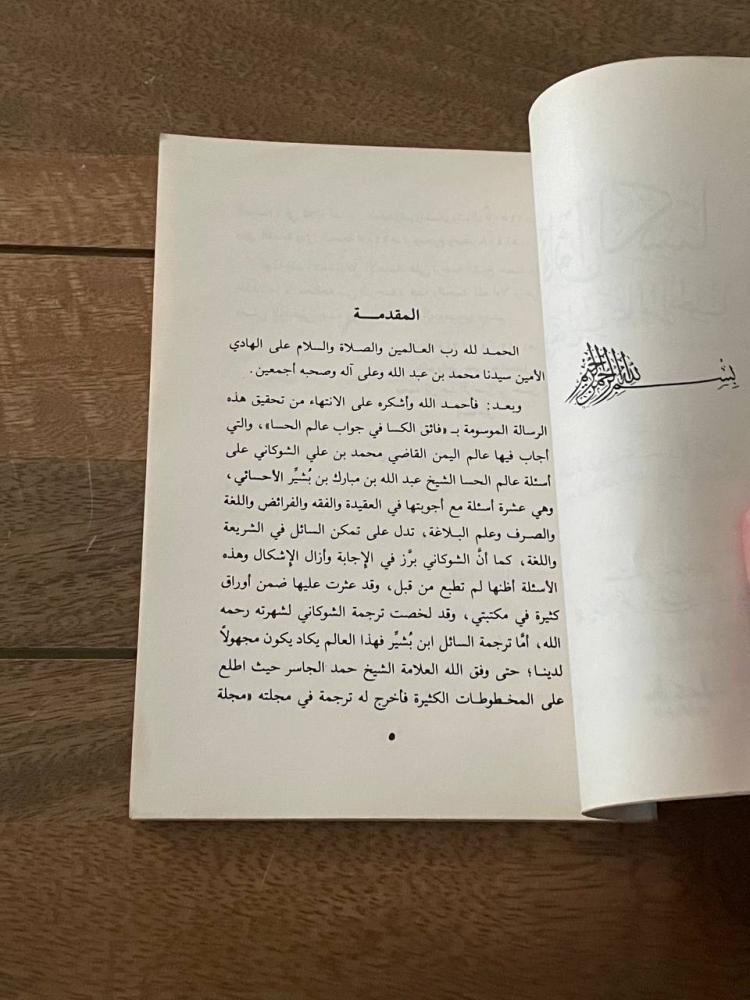 بسم الله الرحمن الرحيم
المقدمـــة
الحمـد لله رب العـالمين والصـلاة والسـلام على الهادي
الأمين سيدنا محمد بن عبد الله وعلى آله وصحبه أجمعين.
وبعـد: فأحمـد الله وأشكره على الانتهاء من تحقيق هذه
الرسالة الموسومة بـ «فائق الكسا في جواب عالم الحسا»، والتي
أجاب فيها عالم اليمن القاضي محمد بن علي الشوكاني على
أسئلة عالم الحسا الشيخ عبد الله بن مبارك بن بُشيِّر الأحسائي،
وهي عشرة أسئلة مع أجوبتها في العقيدة والفقه والفرائض واللغة
والصـرف وعلم البـلاغة، تدل على تمكن السائل في الشريعة
واللغة، كما أنَّ الشوكاني برَّز في الإجابة وأزال الإشكال وهذه
الأسئلة أظنها لم تطبع من قبل، وقد عثرت عليها ضمن أوراق
كثيرة في مكتبتي، وقد لخصت ترجمة الشوكاني لشهرته رحمه
الله، أمَّا ترجمة السائل ابن بُشيِّر فهذا العالم يكاد يكون مجهولاً
لدينـا؛ حتى وفق الله العلامة الشيخ حمد الجاسر حيث اطلع
على المخـطوطـات الكثيرة فأخرج له ترجمة في مجلته «مجلة
٥